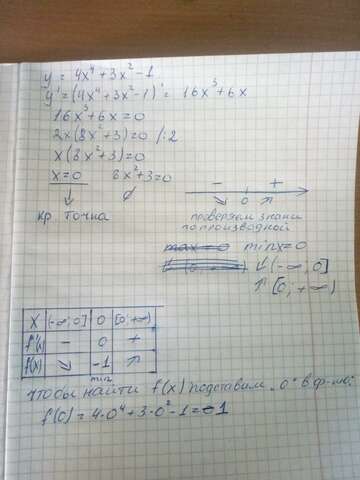 y = 4x⁴+3x²-1
y' = (4x⁴+3x²-1)' = 16x³+6x
16x³+6x=0
2x(8x²+3)=0 /:2
x(8x²+3)=0
x=0 8x²+3=0
↓ ∅
кр. точка
- +
↘ 0 ↗
проверяем знаки
по производной
max = 0 min x=0
↓ (-∞; 0]
↑ [0; +∞)
x (-∞; 0] 0 [0; +∞)
f'(x) - 0 +
f(x) ↘ -1 ↗
min
чтобы найти f(x) подставим "0" в ф-лю:
f(0) = 4·0⁴+3·0²-1=-1